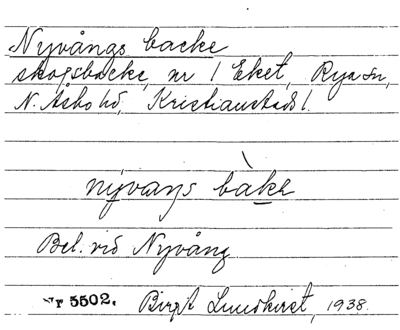 Nyvångs backe
skogsbacke, nr 1 Eket, Rya sn,
N. Åsbo hd, Kristianstads l.
nyvaŋs bàkə
Bel. vid Nyvång
Nr 5502. Birgit Lundkvist, 1938.